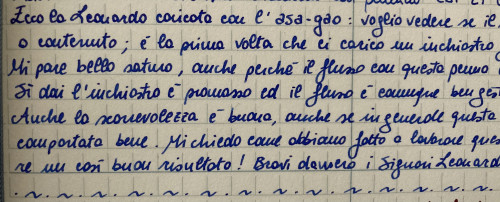 Ecco la Leonardo caricata con l'asa-gao: voglio vedere se il
o contenuto; è la prima volta che ci carico un inchiostro
Mi pare bello saturo, anche perchè il flusso con questa penna
Si dai l'inchiostro è promosso ed il flusso è comunque ben ges
Anche la scorrevolezza è buona, anche se in generale questa
comportata bene. Mi chiedo come abbiano fatto a lavorare ques
re un così buon risultato! Bravi davvero i Signori Leonard